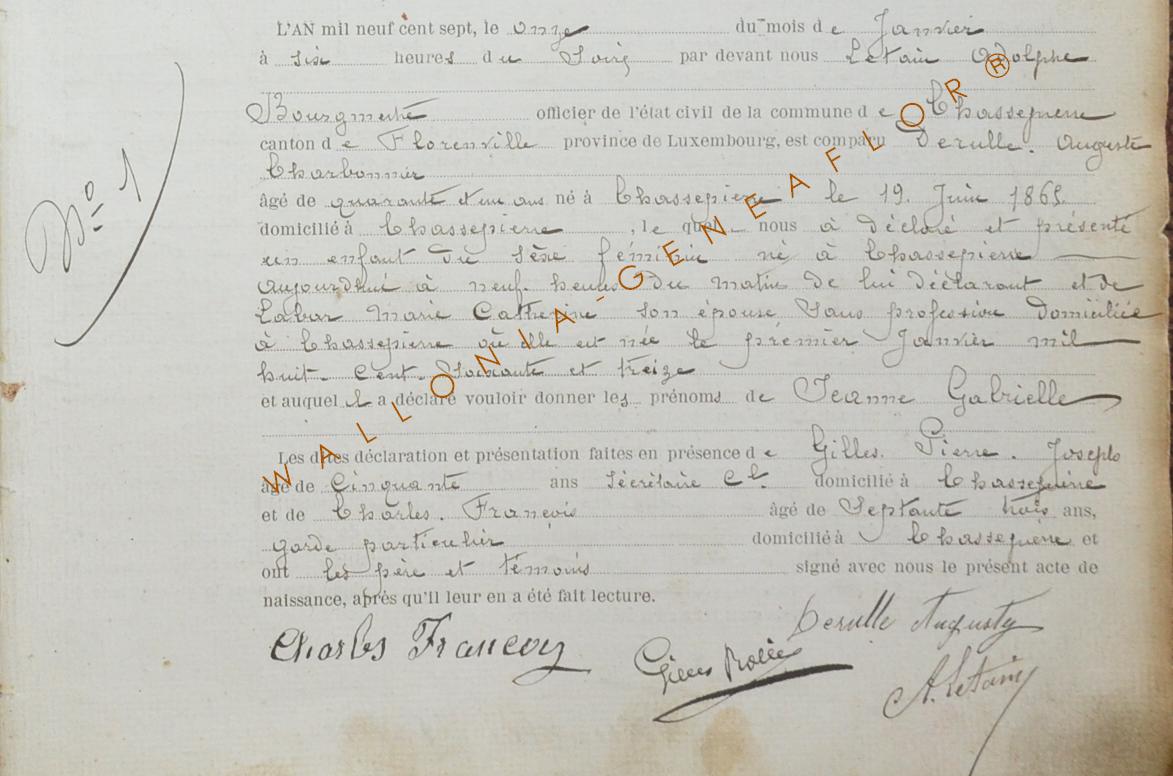 Nº 1
L'AN mil neuf cent sept, le onze du mois de Janvier
à six heures du Soir par devant nous Letain Adolphe
Bourgmestre officier de l'état civil de la commune de Chassepierre
canton de Florenville province de Luxembourg, est comparu Derulle. Auguste
Charbonnier
âgé de quarante et un ans né à Chassepierre le 19. Juin 1865.
domicilié à Chassepierre, le quel nous à déclaré et présenté
un enfant du sèxe féminin né à Chassepierre
aujourdhui à neuf heures du matin de lui déclarant et de
Labar Marie Catherine son épouse Sans profession domiciliée
à Chassepierre où elle est née le premier Janvier mil
huit Cent Soixante et treize
et auquel il a déclaré vouloir donner les prénoms de Jeanne Gabrielle
Les dites déclaration et présentation faites en présence de Gilles. Pierre. Joseph
âgé de Cinquante ans Sécrétaire Cl. domicilié à Chassepierre
et de Charles. François âgé de Septante trois ans,
garde particulier domicilié à Chassepierre et
ont les père et témoins signé avec nous le présent acte de
naissance, après qu'il leur en a été fait lecture.
Derulle Auguste
Charles Francois
Gilles
A. Letain
WALLONIA-GENEAFLOR ®